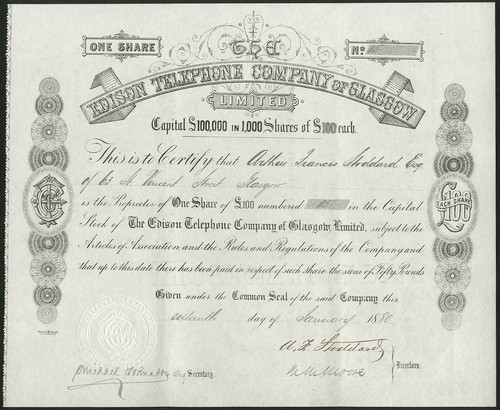 ONE SHARE
THE
No
EDISON TELEPHONE COMPANY OF GLASGOW
LIMITED
Capital £100,000 IN 1,000 Shares of £100 each.
This is to Certify that Arthur Francis Stoddard Esq
of 63 St Vincent Street Glasgow
is the Proprietor of One Share of £100 numbered in the Capital
Stock of The Edison Telephone Company of Glasgow, Limited, subject to the
Articles of Association and the Rules and Regulations of the Company and
that up to this date there has been paid in respect of such Share the sum of Fifty Pounds
£100
EACH SHARE
Given under the Common Seal of the said Company this
day of January 1880
A. F. Stoddard
Secretary.
Directors.